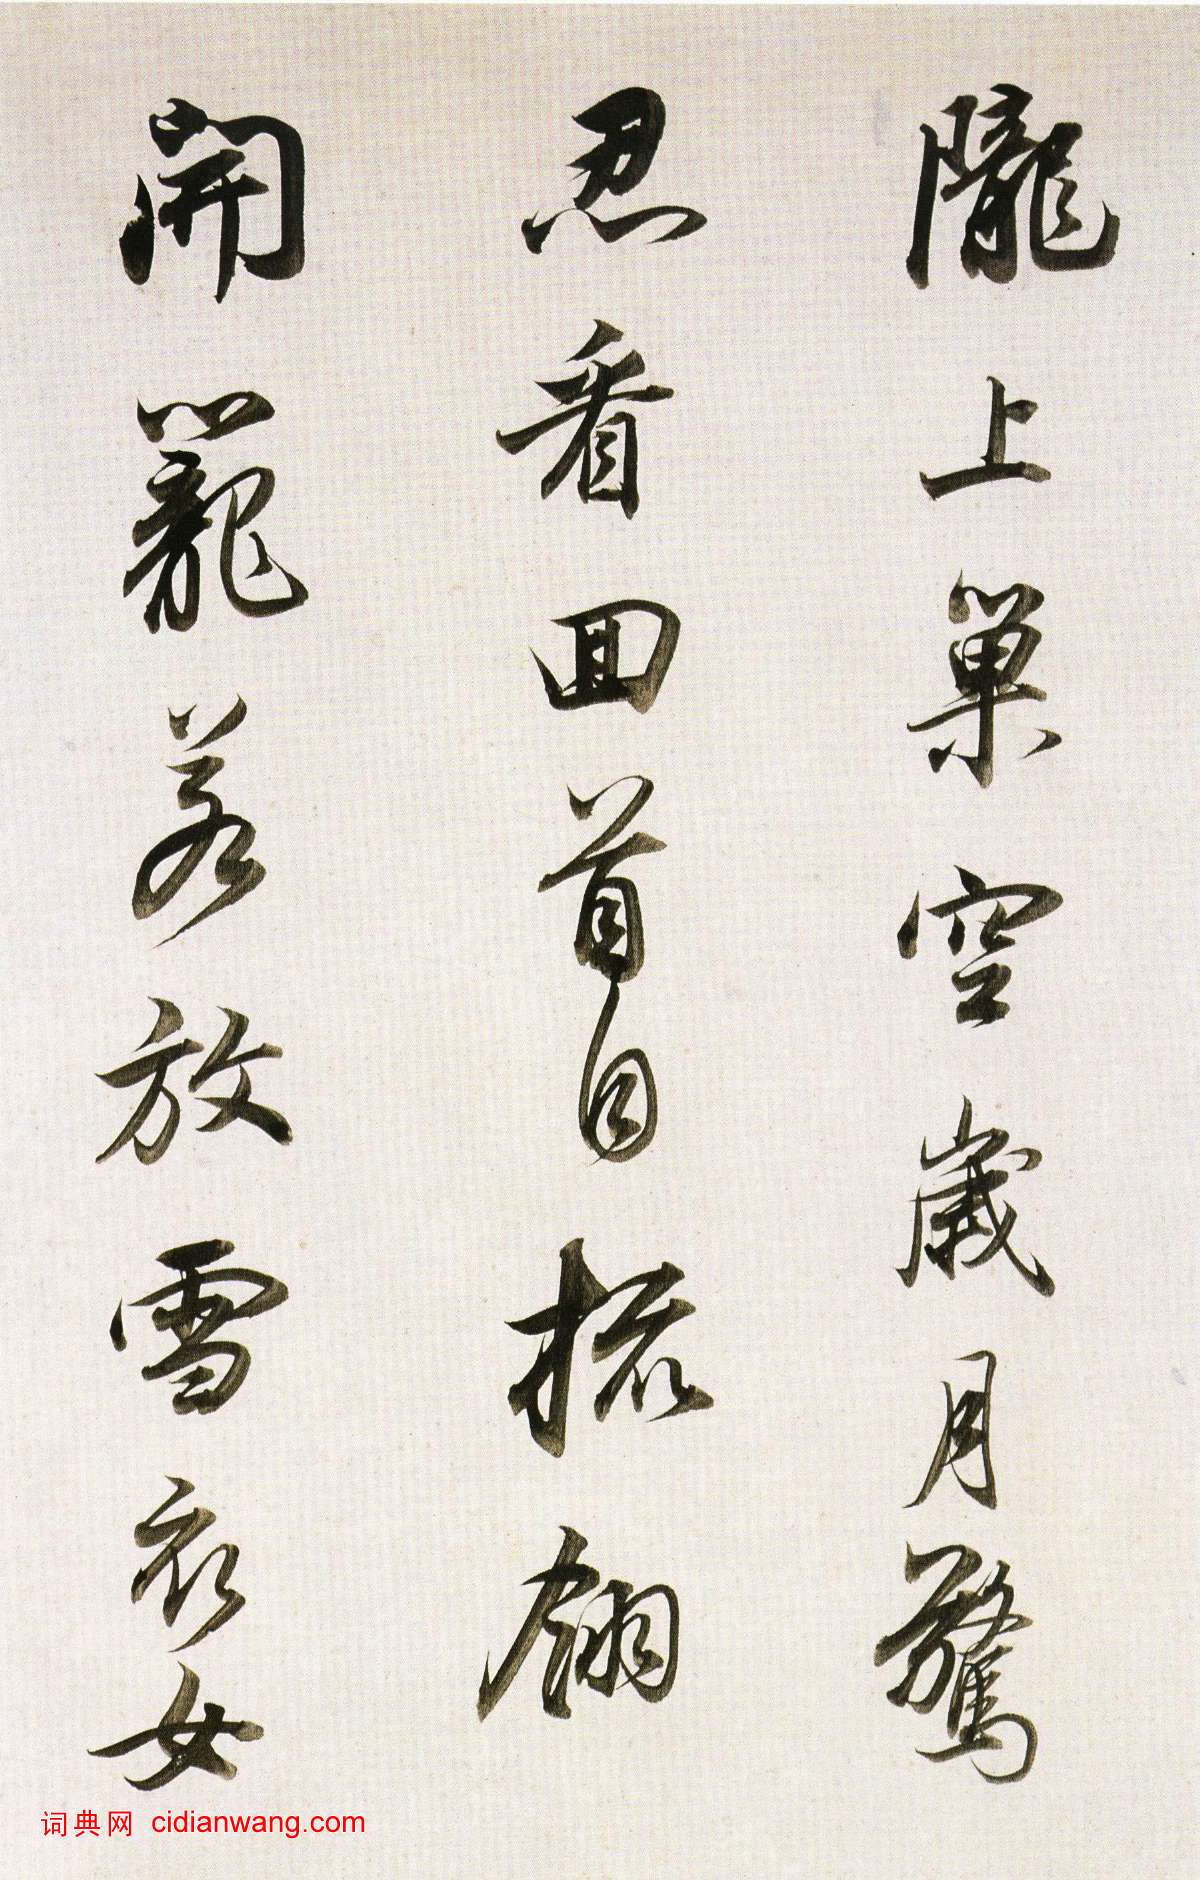 隴上巢空歲月驚
忍看回首自梳翎
開籠若放雪衣女
词典网 cidianwang.com